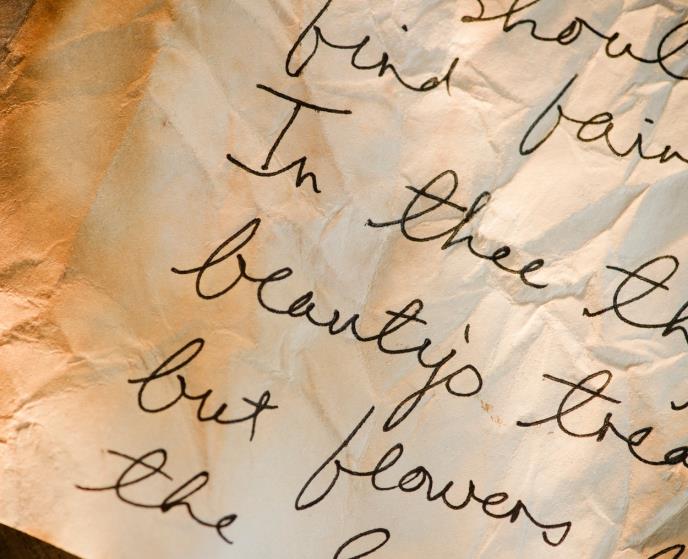 shoul
find fain
In thee th
beauty's trea
but flowers
the